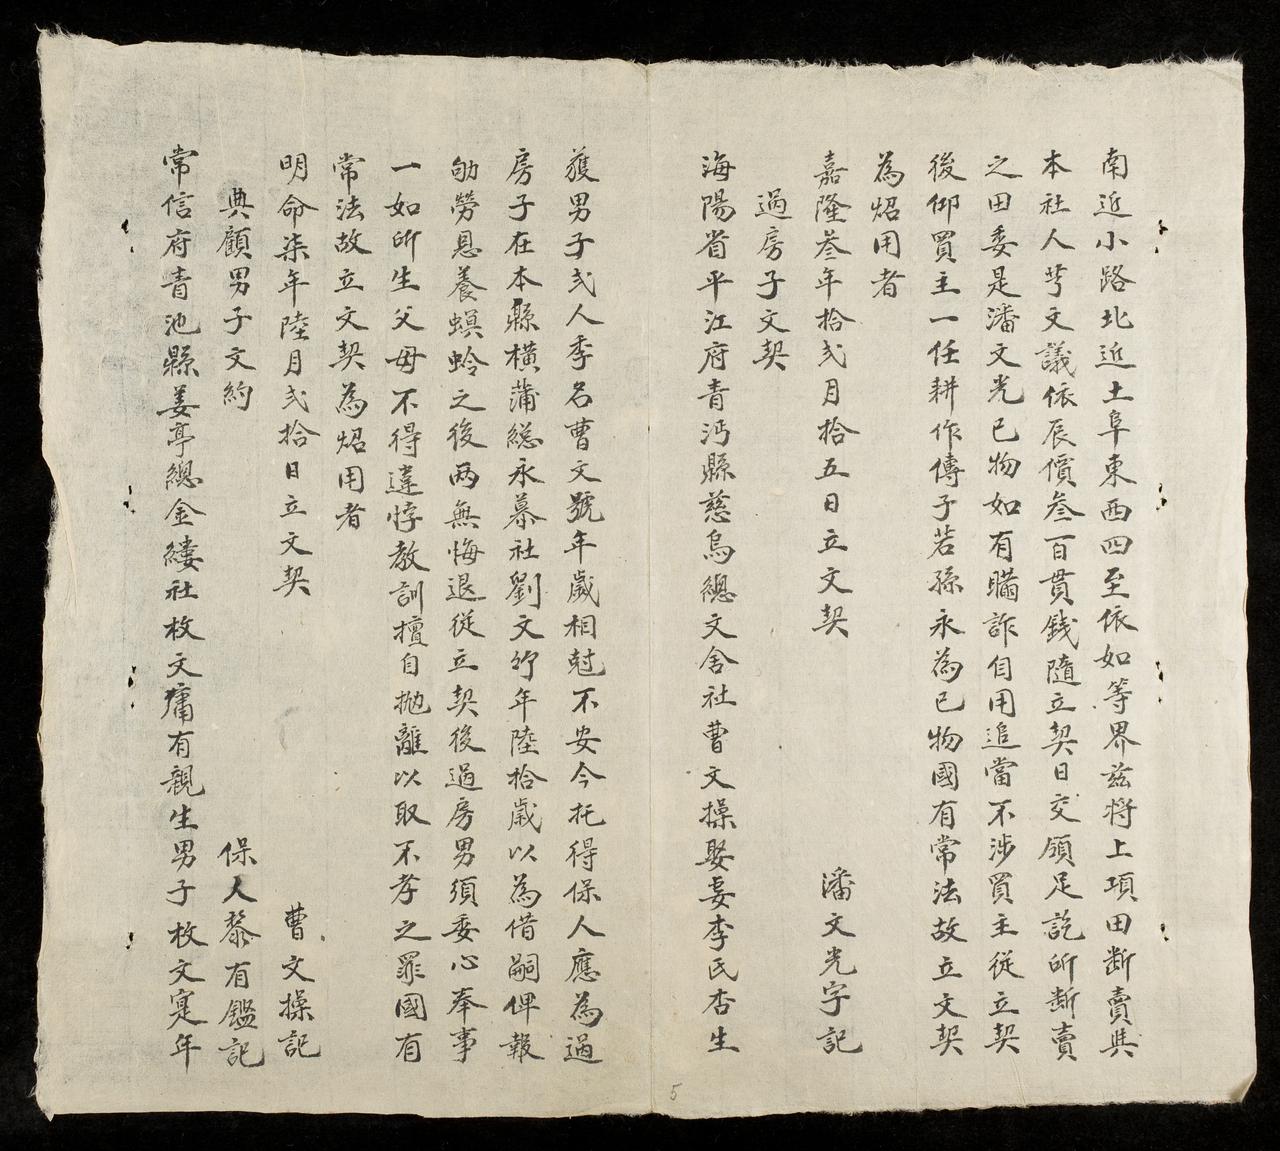 南近小路北近土阜東西四至依如等界茲将上項田断賣與
本社人芎文議依辰價叁百貫銭隨立契日交領足訖所断賣
之田委是潘文光已物如有瞞詐自用追當不涉買主従立契
後仰買主一任耕作傳子若孫永為已物國有常法故立文契
為炤用者
嘉隆叁年拾弍月拾五日立文契 潘文光字記
過房子文契
海陽省平江府青沔縣慈烏總文舍社曹文操娶妾李氏杏生
獲男子弍人季名曹文號年歲相尅不安今托得保人應為過
房子在本縣横蒲総永慕社劉文竹年陸拾歲以為借嗣俾報
劬勞恩養螟蛉之後两無悔退従立契後過房男須委心奉事
一如所生父母不得違悖教訓擅自抛離以取不孝之罪國有
常法故立文契為炤用者
明命柒年陸月弍拾日立文契 曹文操記
典顧男子文約 保人黎有鑑記
常信府青池縣姜亭總金縷社枚文慵有親生男子枚文寔年
5